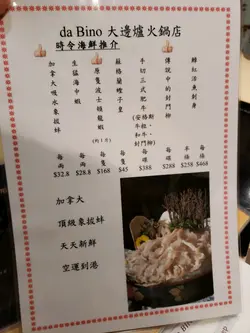 da Bino 大邊爐火鍋店
時令海鮮推介
加拿大吸水象拔蚌
每両
$32.8
生猛海中蝦
每両
$28.8
原隻波士頓龍蝦
(約1斤)
每隻
$168
蘇格蘭蟶子皇
每隻
$45
手切三式肥牛
(安格斯牛拉、和牛和封門柳)
每碟
$388
傳說中的封門柳
每碟
$288
半條
$258
歸紅活魚刺身
每條
$468
加拿大
頂級象拔蚌
天天新鮮
空運到港